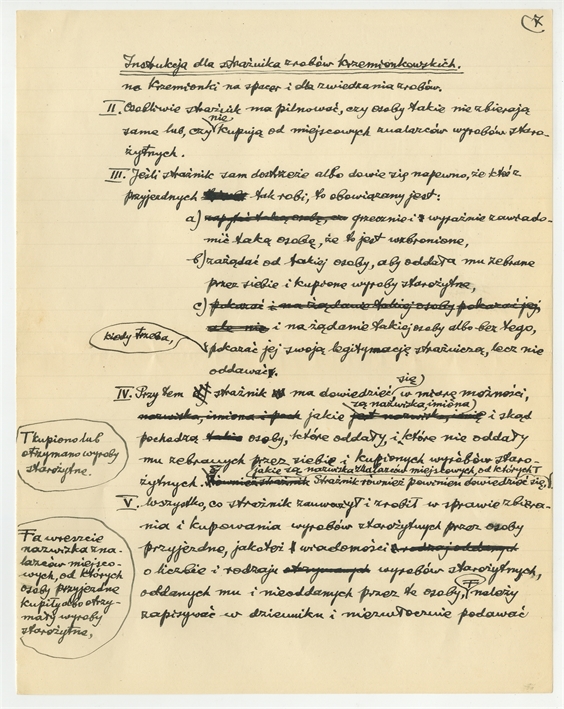 7
Instrukcja dla strażnika zrobów krzemionkowskich.
na Krzemionki na spacer i dla zwiedzania zrobów.
II. Osobliwie strażnik ma pilnować, czy osoby takie nie zbierają
same lub, czy nie kupują od miejscowych znalazców wyrobów staro-
żytnych.
III. Jeśli strażnik sam dostrzeże albo dowie się napewno, że ktoś z
przyjezdnych tak robi, to obowiązany jest:
a) grzecznie i wyraźnie zawiado-
mić taką osobę, że to jest wzbronione,
b) zażądać od takiej osoby, aby oddała mu zebrane
przez siebie i kupione wyroby starożytne,
c) pokazać i na żądanie takiej osoby pokazać jej
i na żądanie takiej osoby albo bez tego,
kiedy trzeba,
pokazać jej swoją legitymację strażniczą, lecz nie
oddawać.
IV. Przy tem strażnik ma dowiedzieć się, w miarę możności,
są nazwiska, imiona
nazwiska, imiona i jakie i skąd
pochodzą osoby, które oddały, i które nie oddały
mu zebranych przez siebie i kupionych wyrobów staro-
jakie są nazwiska znalazców miejscowych, od których T
żytnych. Strażnik również powinien dowiedzieć się,
T kupiono lub
otrzymano wyroby
starożytne.
V. Wszystko, co strażnik zauważył i zrobił w sprawie zbiera-
nia i kupowania wyrobów starożytnych przez osoby
przyjezdne, jakoteż wiadomości o rodzaju oddanych
o liczbie i rodzaju otrzymanych wyrobów starożytnych,
oddanych mu i nieoddanych przez te osoby, F należy
zapisywać w dzienniku i niezwłocznie podawać
F a wreszcie
nazwiska zna-
lazców miejsco-
wych, od których
osoby przyjezdne
kupiły albo otrzy-
mały wyroby
starożytne,